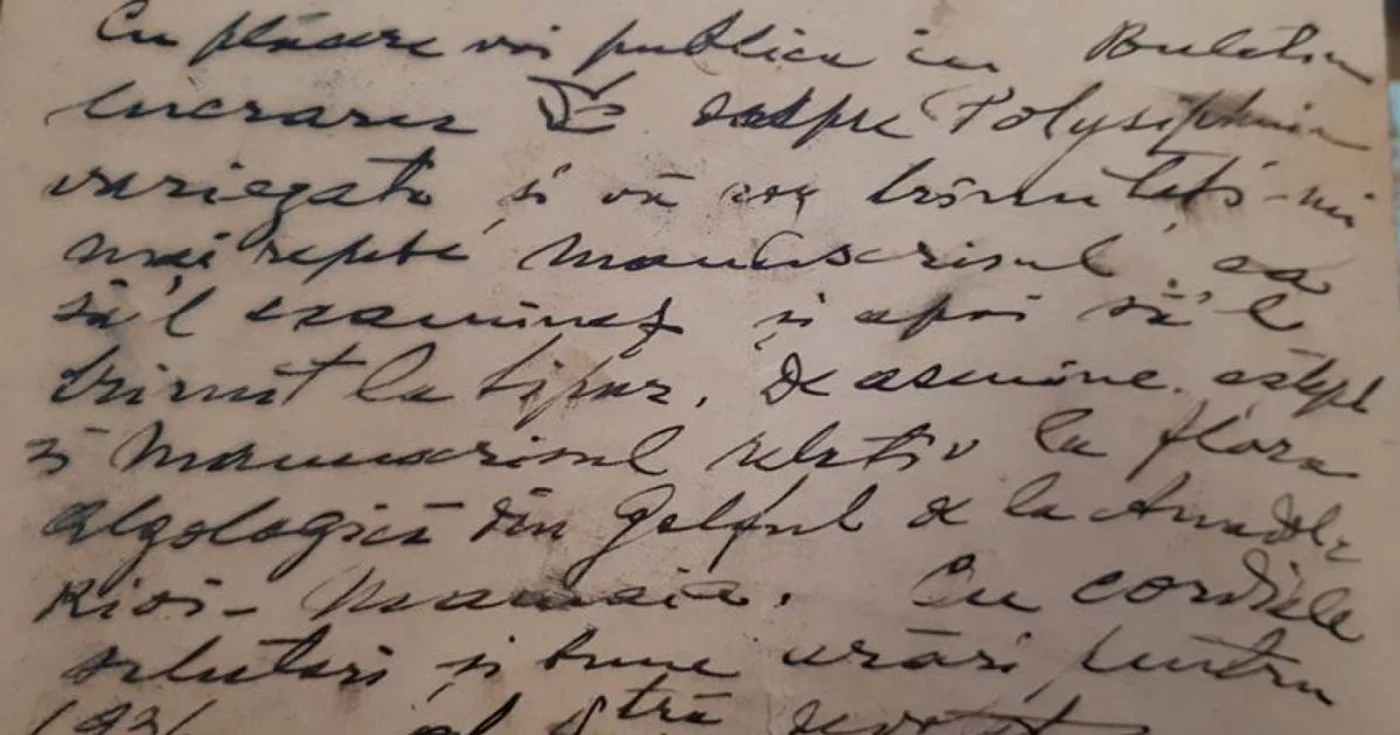 Cu plăcere voi publica in Buletin
lucrarea Dv despre Polysiphonia
variegata și vă rog trimiteți-mi
mai repede manuscrisul, ca
să'l examinez și apoi să'l
trimit la tipar. De asemine aștept
și manuscrisul relativ la flora
algologică din Golful de la Anadol
Kioi - Mamaia. Cu cordiale
salutari și bune urări pentru
al Dtră devotat